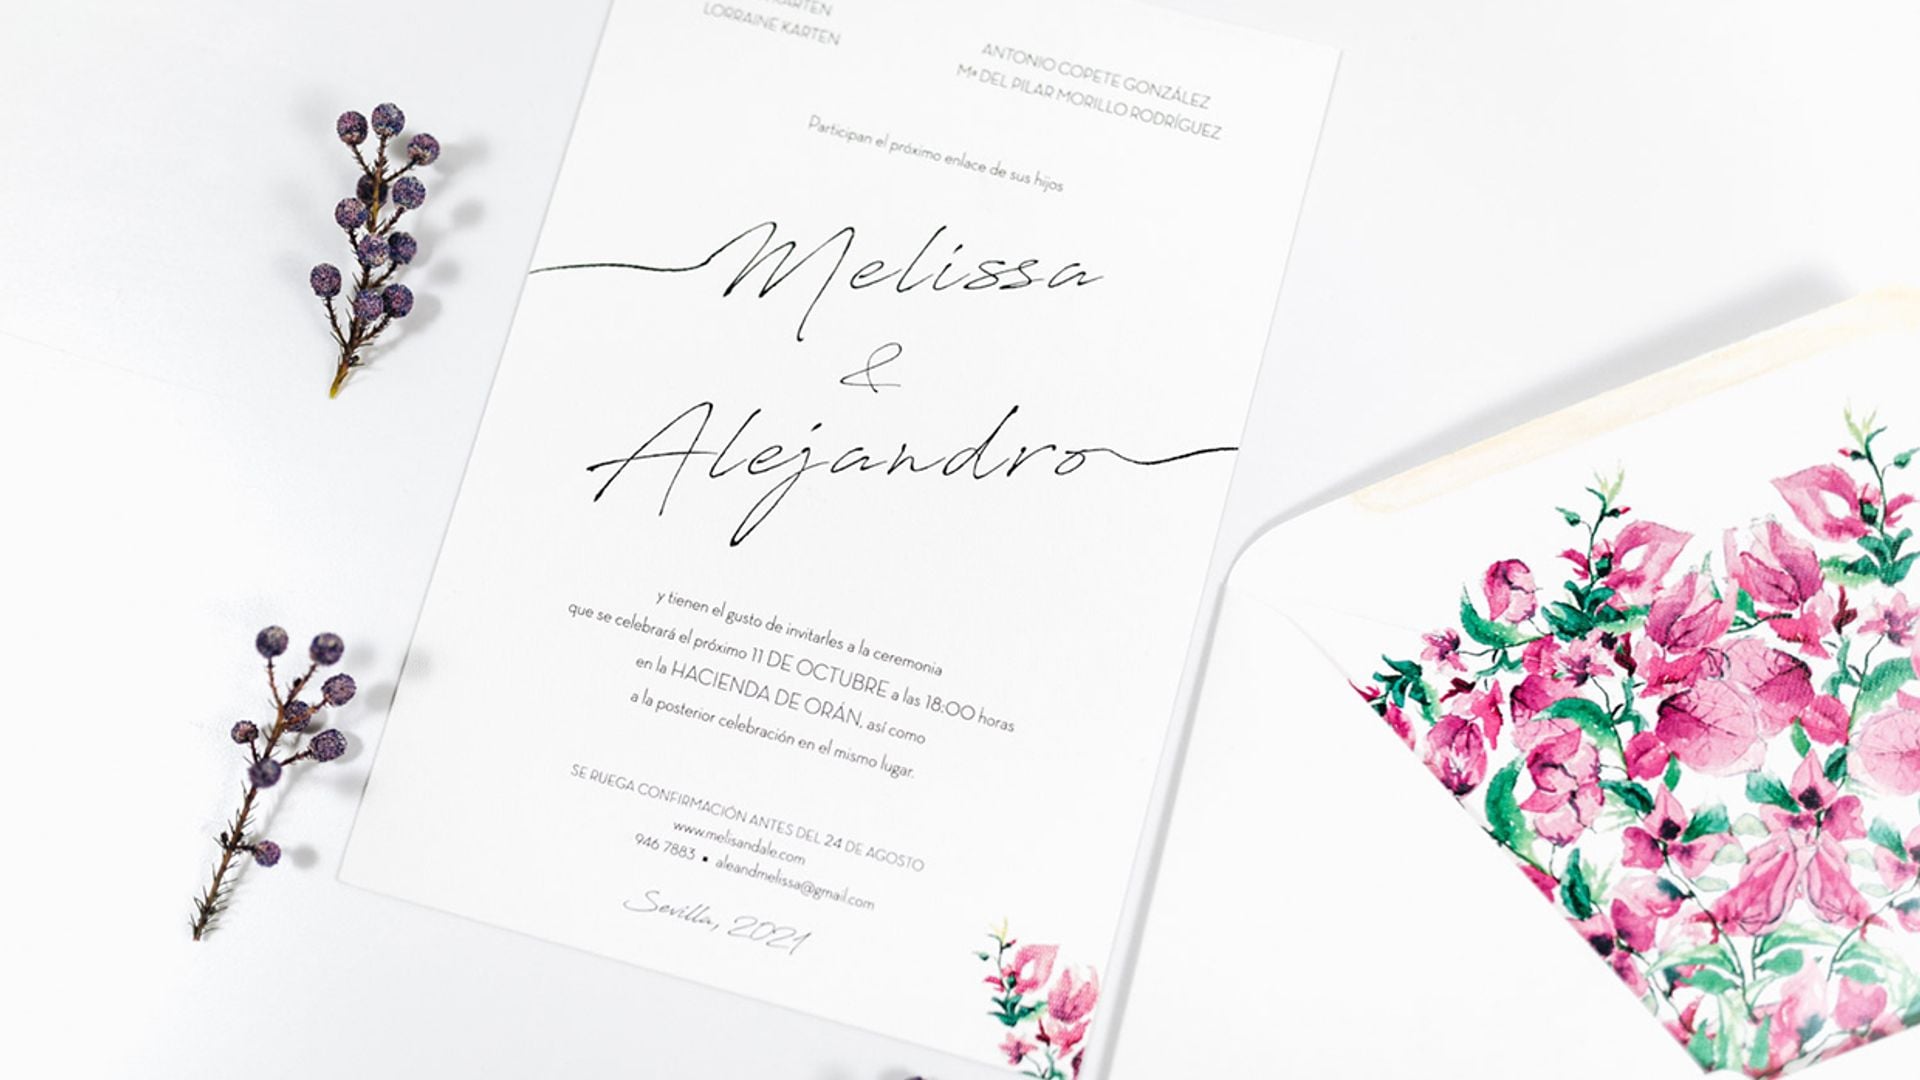 KARTEN
LORRAINE KARTEN
ANTONIO COPETE GONZÁLEZ
Mª DEL PILAR MORILLO RODRÍGUEZ
Participan el próximo enlace de sus hijos
Melissa
&
Alejandro
y tienen el gusto de invitarles a la ceremonia
que se celebrará el próximo 11 DE OCTUBRE a las 18:00 horas
en la HACIENDA DE ORÁN, así como
a la posterior celebración en el mismo lugar.
SE RUEGA CONFIRMACIÓN ANTES DEL 24 DE AGOSTO
www.melisandale.com
946 7883 ▪ aleandmelissa@gmail.com
Sevilla, 2021